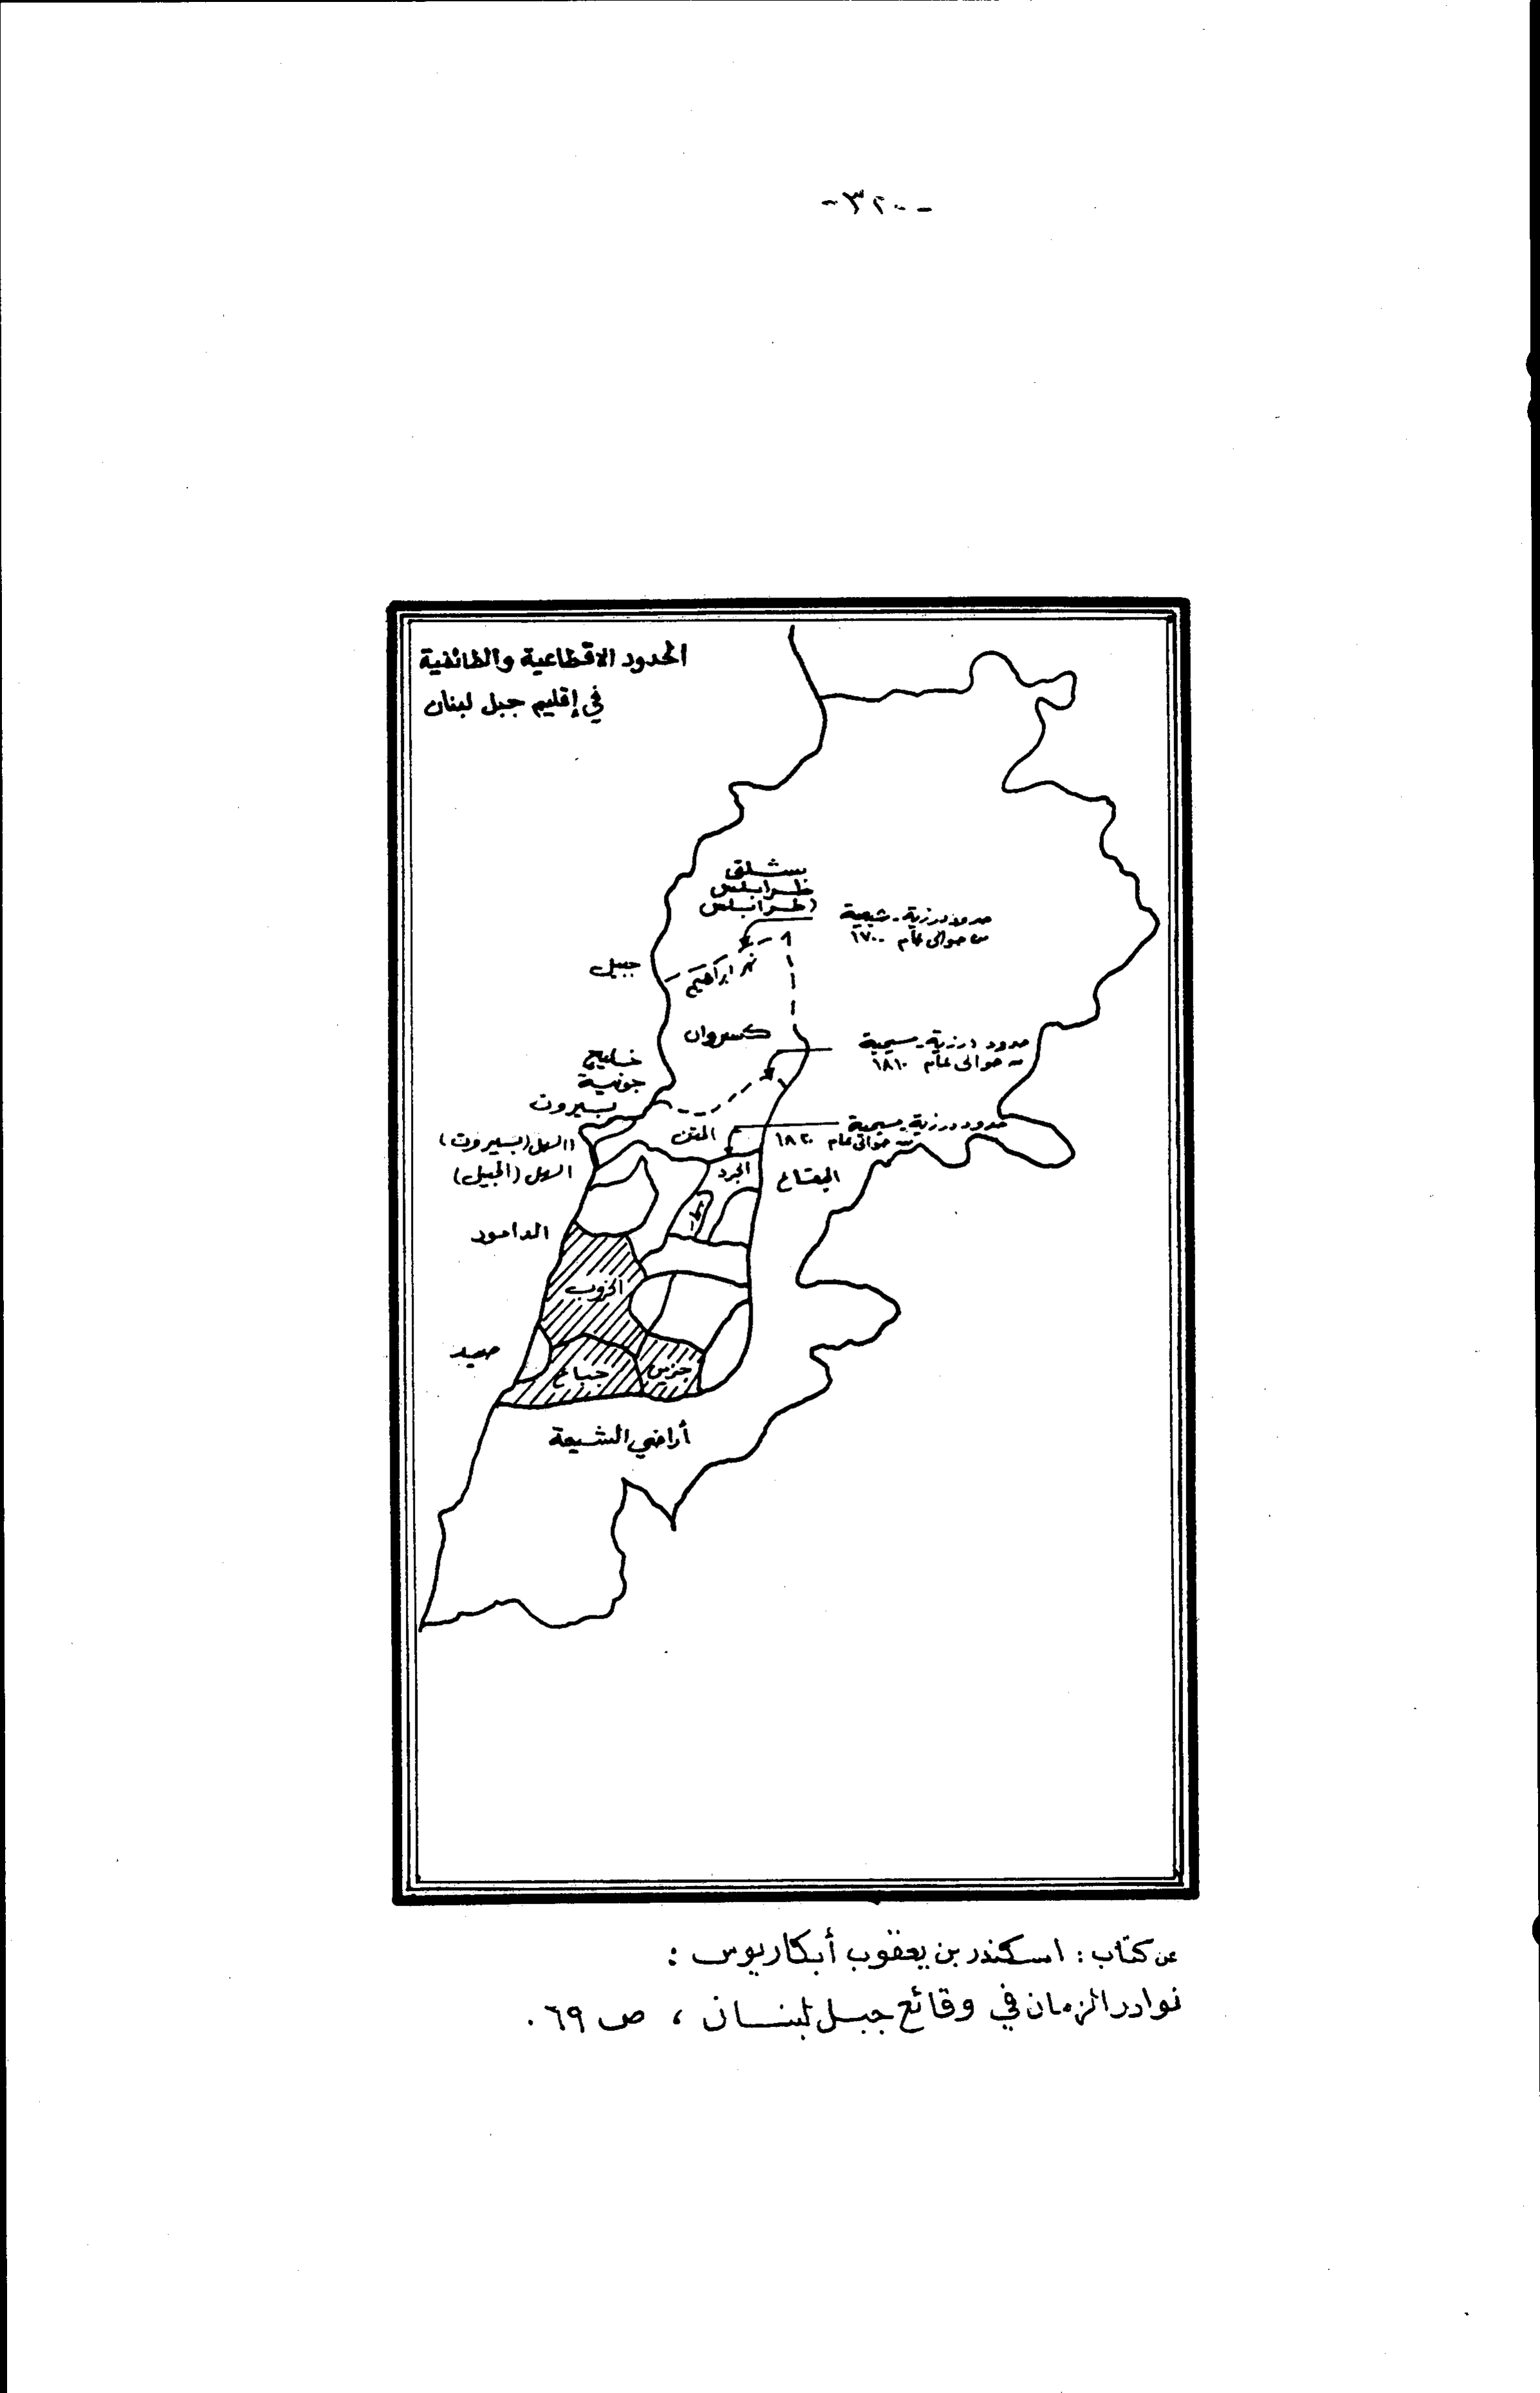 -٣٢٠-
الحدود الاقطاعية والطائفية
في إقليم جبل لبنان
بشلق
طرابلس
(طرابلس
حدود درزية-شيعية
حوالي عام ١٧٠٠
جبيل
نهر ابراهيم
كسروان
حدود درزية-مسيحية
حوالي عام ١٨١٠
خليج
جونية
بيروت
حدود درزية-مسيحية
حوالي عام ١٨٢٠
المتن
السهل (بيروت)
السهل (الجبيل)
الجرد
البقاع
الدامور
الخروب
صيد
جباع
جزين
أراضي الشيعة
عن كتاب: اسكندر بن يعقوب أبكاريوس:
نوادر الزمان في وقائع جبل لبنان، ص ٦٩.